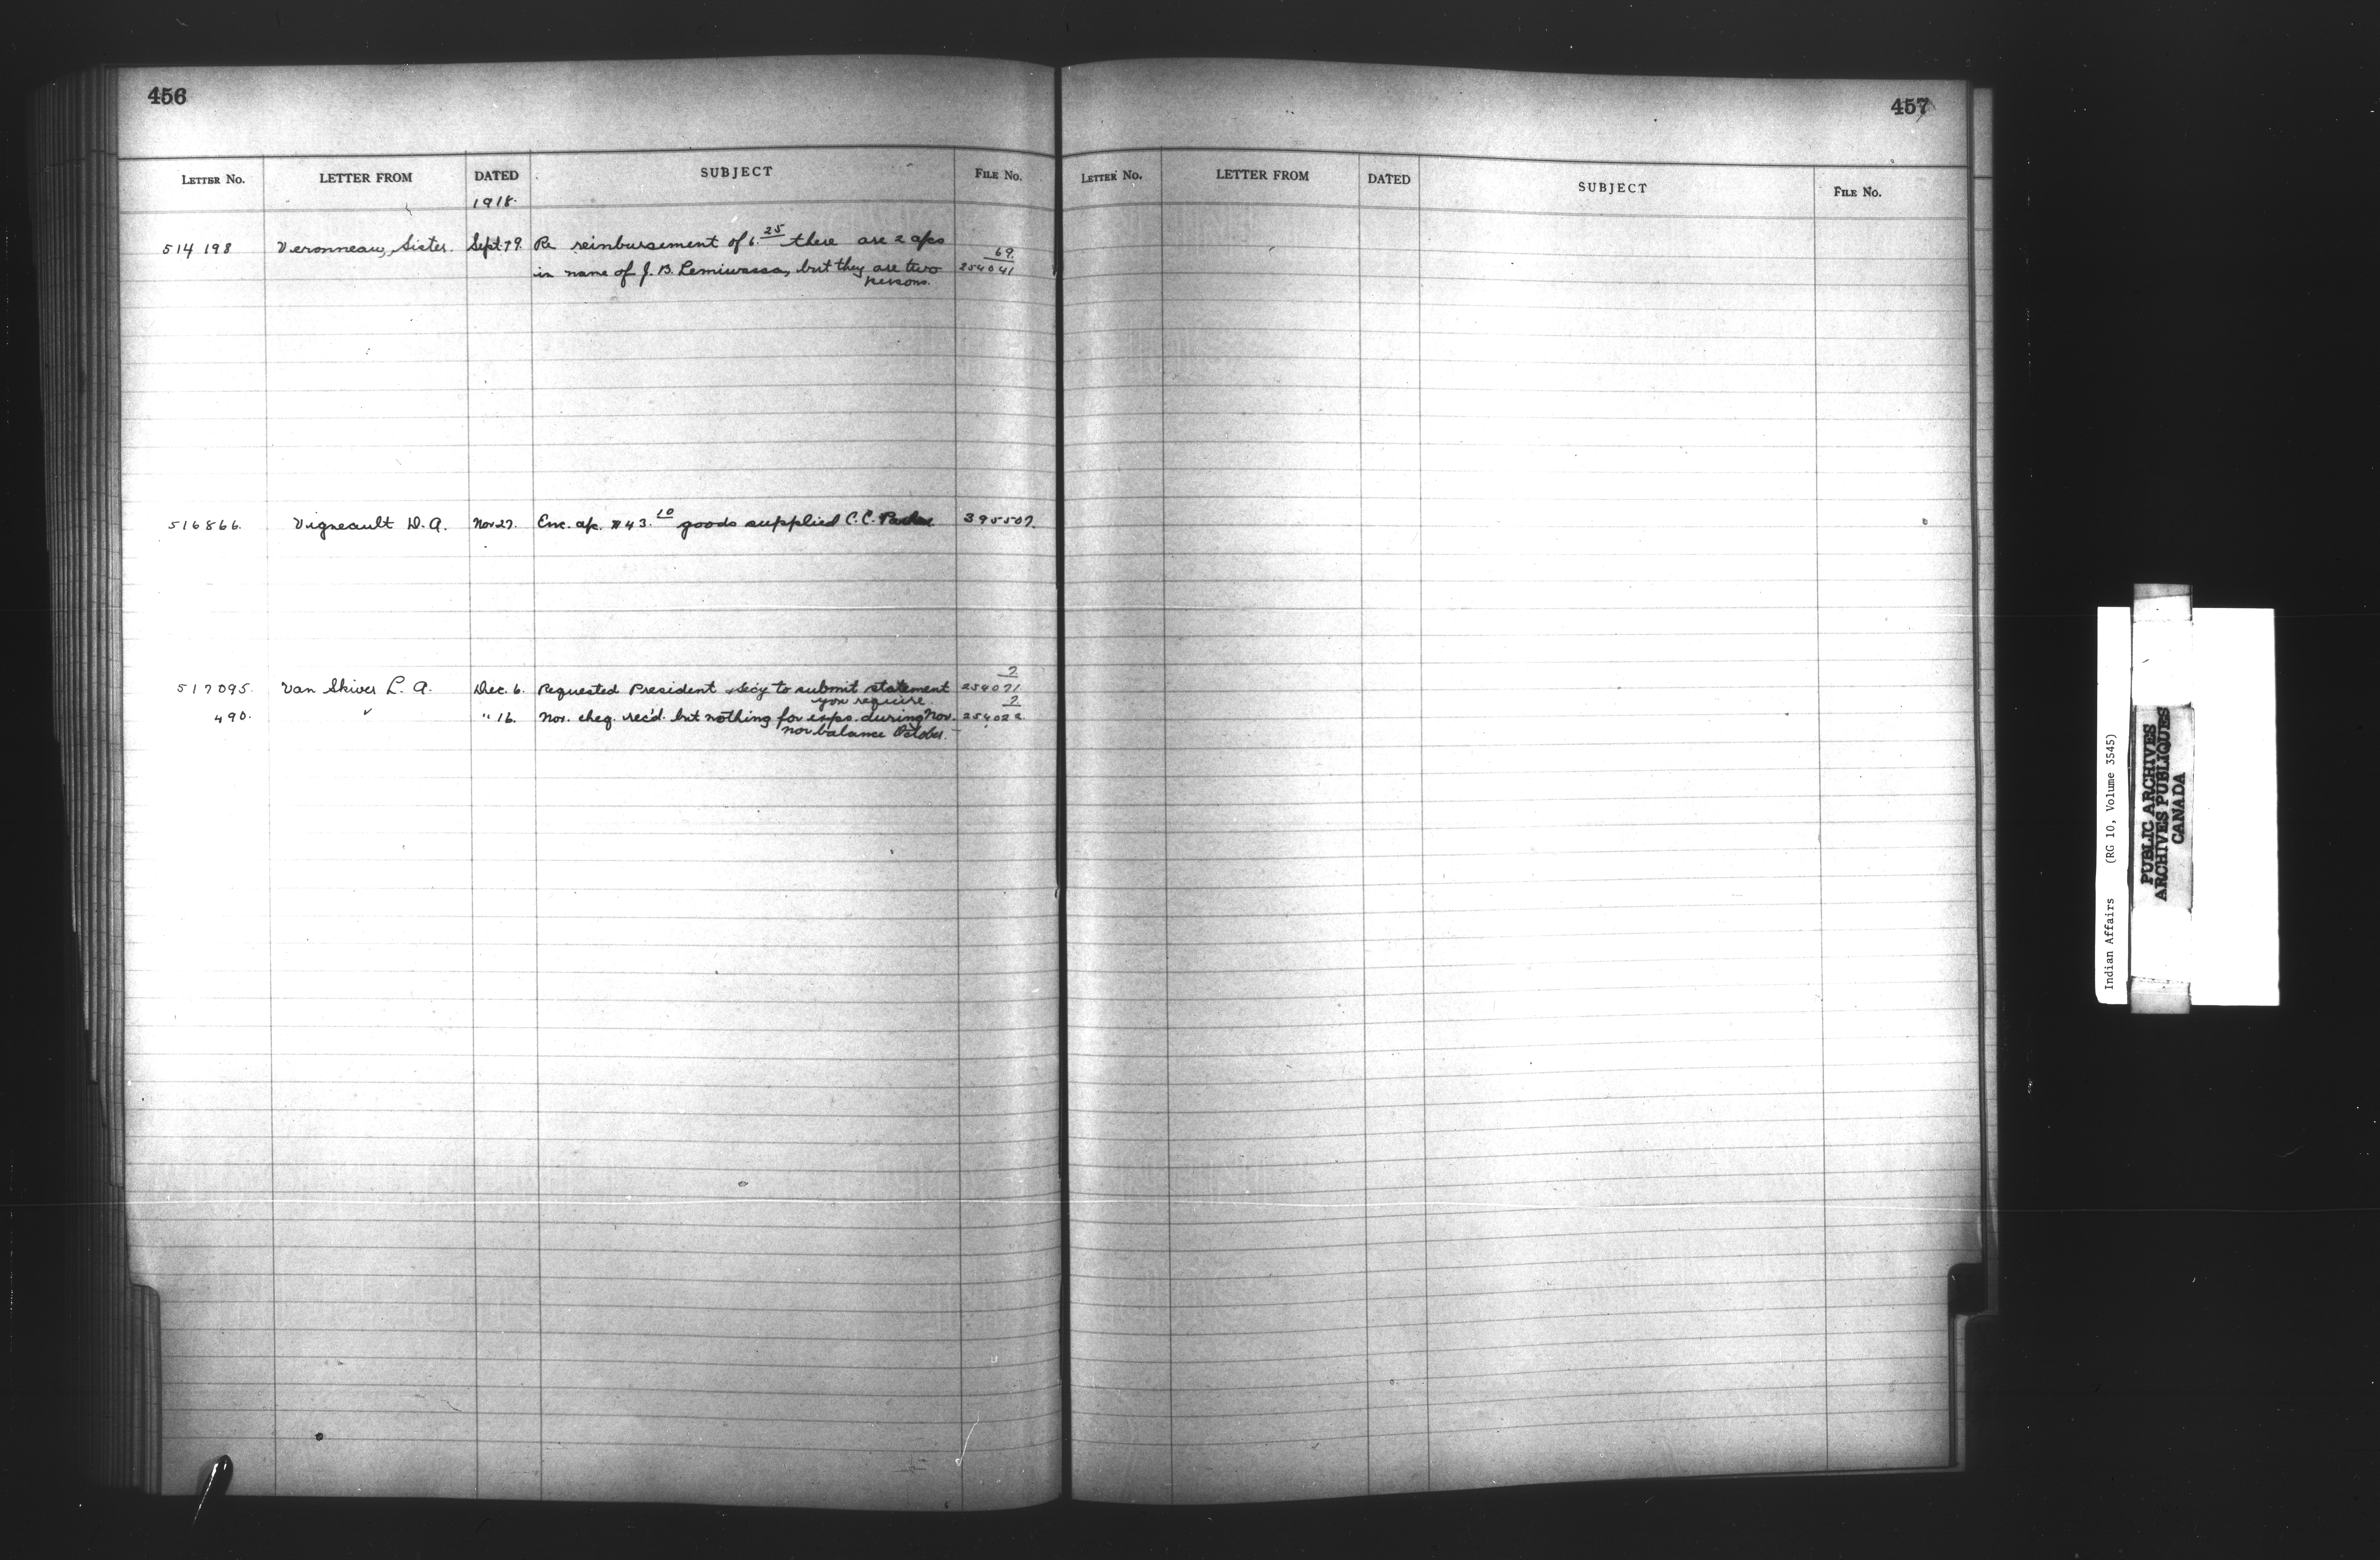 456
LETTER No. LETTER FROM DATED SUBJECT FILE No.
1918.
514198 Veronneau, Sister. Sept. 19. Re reimbursement of 6.25 there are 2 a/cs 69
in name of J. B. Lemiwassa, but they are two 254041
persons.
516866. Vigneault D. A. Nov 27. Enc. a/c. $43.10 goods supplied C. C. 395507.
2
517095. Van Skiver L. A. Dec. 6. Requested President & Sec'y to submit statement 254071
you require. 2
490. " " 16. Nov. cheq. rec'd. but nothing for exps. during Nov. 254022.
nor balance October.
457
LETTER No. LETTER FROM DATED SUBJECT FILE No.
Indian Affairs (RG 10, Volume 3545)
PUBLIC ARCHIVES
ARCHIVES PUBLIQUES
CANADA